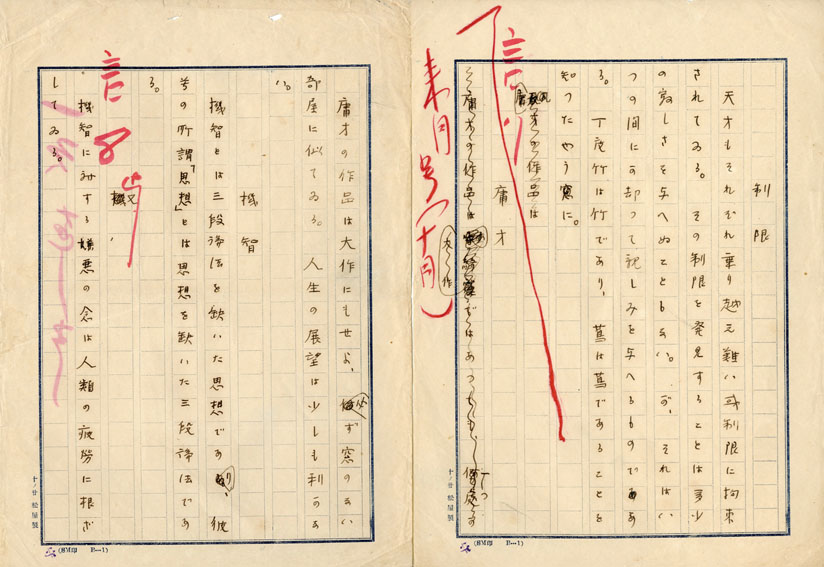 制限
天才もそれぞれ乗り越え難い或制限に拘束
されてゐる。その制限を発見することは多少
の寂しさを与へぬこともない。が、それはい
つの間にか却つて親しみを与へるものであ
る。丁度竹は竹であり、蔦は蔦であることを
知つたやう窓に。
庸才
庸才の作品は
庸才の作品は大作
来月号(十月)
庸才の作品は大作にもせよ、必ず窓のない
部屋に似てゐる。人生の展望は少しも利かな
い。
機智
機智とは三段論法を欠いた思想であり、彼
等の所謂「思想」とは思想を欠いた三段論法であ
る。
又
機智に対する嫌悪の念は人類の疲労に根ざ
してゐる。
十ノ廿 松屋製
(SM印 B—1)
十ノ廿 松屋製
(SM印 B—1)